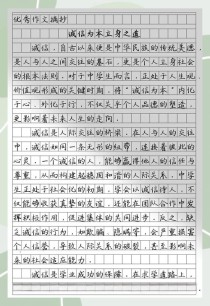 优秀作文摘抄
诚信为本立身之道
诚信，自古以来便是中华民族的传统美德，
是人与人之间交往的基石，更是个人立身社会
的根本法则。对于中学生而言，正处于人生观
价值观形成的关键时期，将“诚信为本”内化
于心、外化于行，不仅关乎个人品德的塑造，
更影响着未来人生的走向。
诚信是人际交往的桥梁。在人与人的交往
中，诚信如同一条无形的纽带，连接着彼此的
心灵。一个诚信的人，能够赢得他人的信任与
尊重，从而构建起稳固和谐的人际关系。中学
生正处于社会化的初期，学会以诚信待人，不
仅能够收获真挚的友谊，还能在团队合作中发
挥积极作用，促进集体的共同进步。反之，缺
乏诚信的行为，如欺骗、隐瞒等，会严重损害
个人信誉，导致人际关系的破裂，甚至影响未
来的社会适应能力。
诚信是学业成功的保障。在求学道路上，